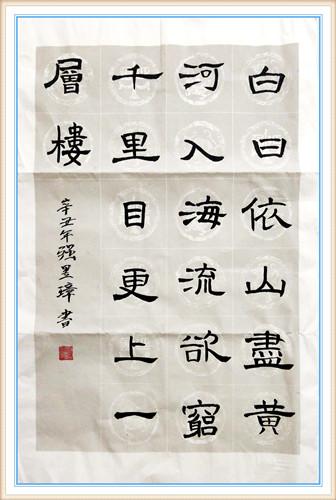 白日依山盡黄
河入海流欲窮
千里目更上一
層樓
辛丑年强昱璋書